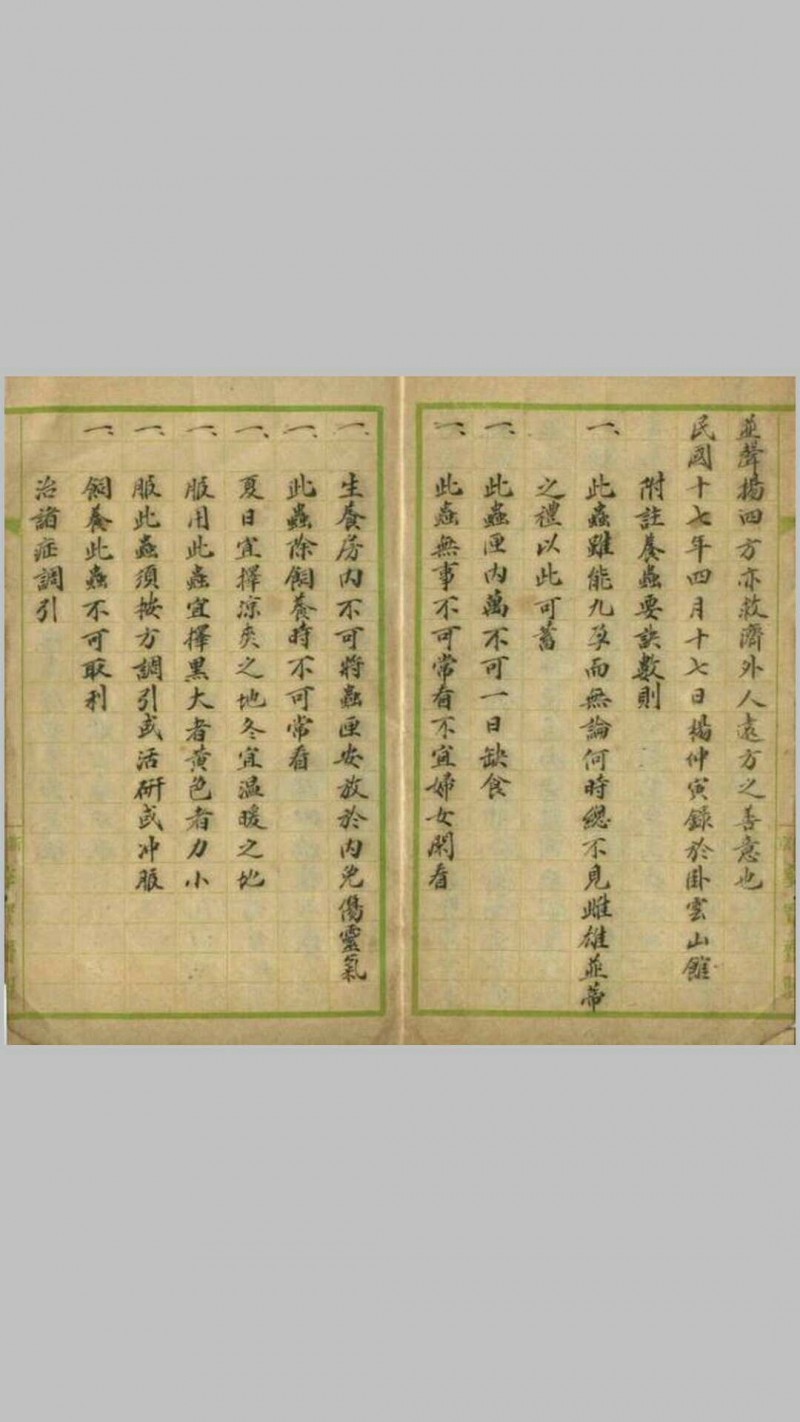 並聲揚四方亦救濟外人遠方之善意也
民國十七年四月十七日楊仲寅錄於卧雲山館
附註養蟲要訣數則
一、此蟲雖能九孕而無論何時總不見雌雄並蒂
之禮以此可蓄
一、此蟲匣內萬不可一日缺食
一、此蟲無事不可常看不宜婦女閑看
一、生養房內不可將蟲匣安放於內免傷靈氣
一、此蟲除飼養時不可常看
一、夏日宜擇涼爽之地冬宜温暖之地
一、服用此蟲宜擇黑大者黄色者力小
一、服此蟲須按方調引或活研或冲服
一、飼養此蟲不可取利
治諸症調引